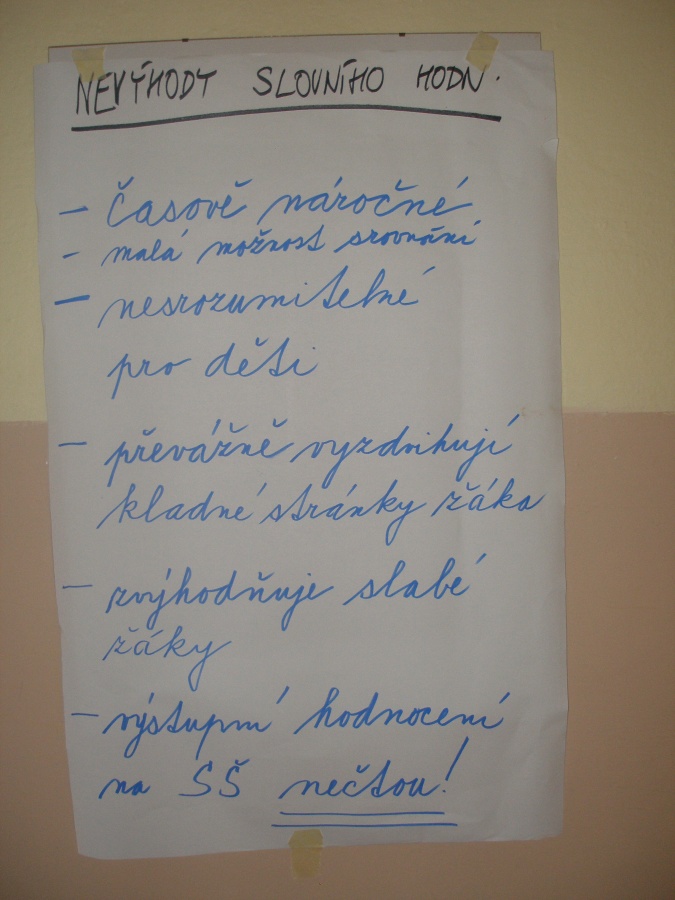 NEVÝHODY SLOVNÍHO HODN.
- časově náročné
- malá možnost srovnání
- nesrozumitelné
pro děti
- převážně vyzdvihují
kladné stránky žáka
- zvýhodňuje slabé
žáky
- výstupní hodnocení
na SŠ nečtou!